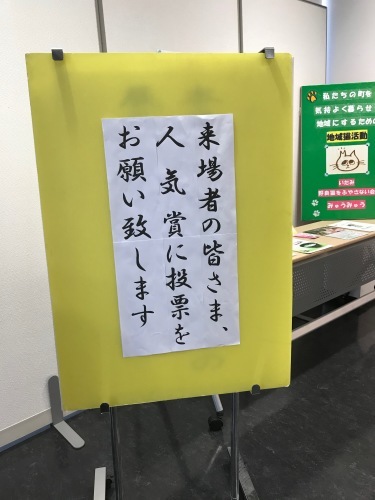 来場者の皆さま、
人気賞に投票を
お願い致します
私たちの町を
気持よく暮らせ
地域にするため
地域猫活動
みゅうみゅう